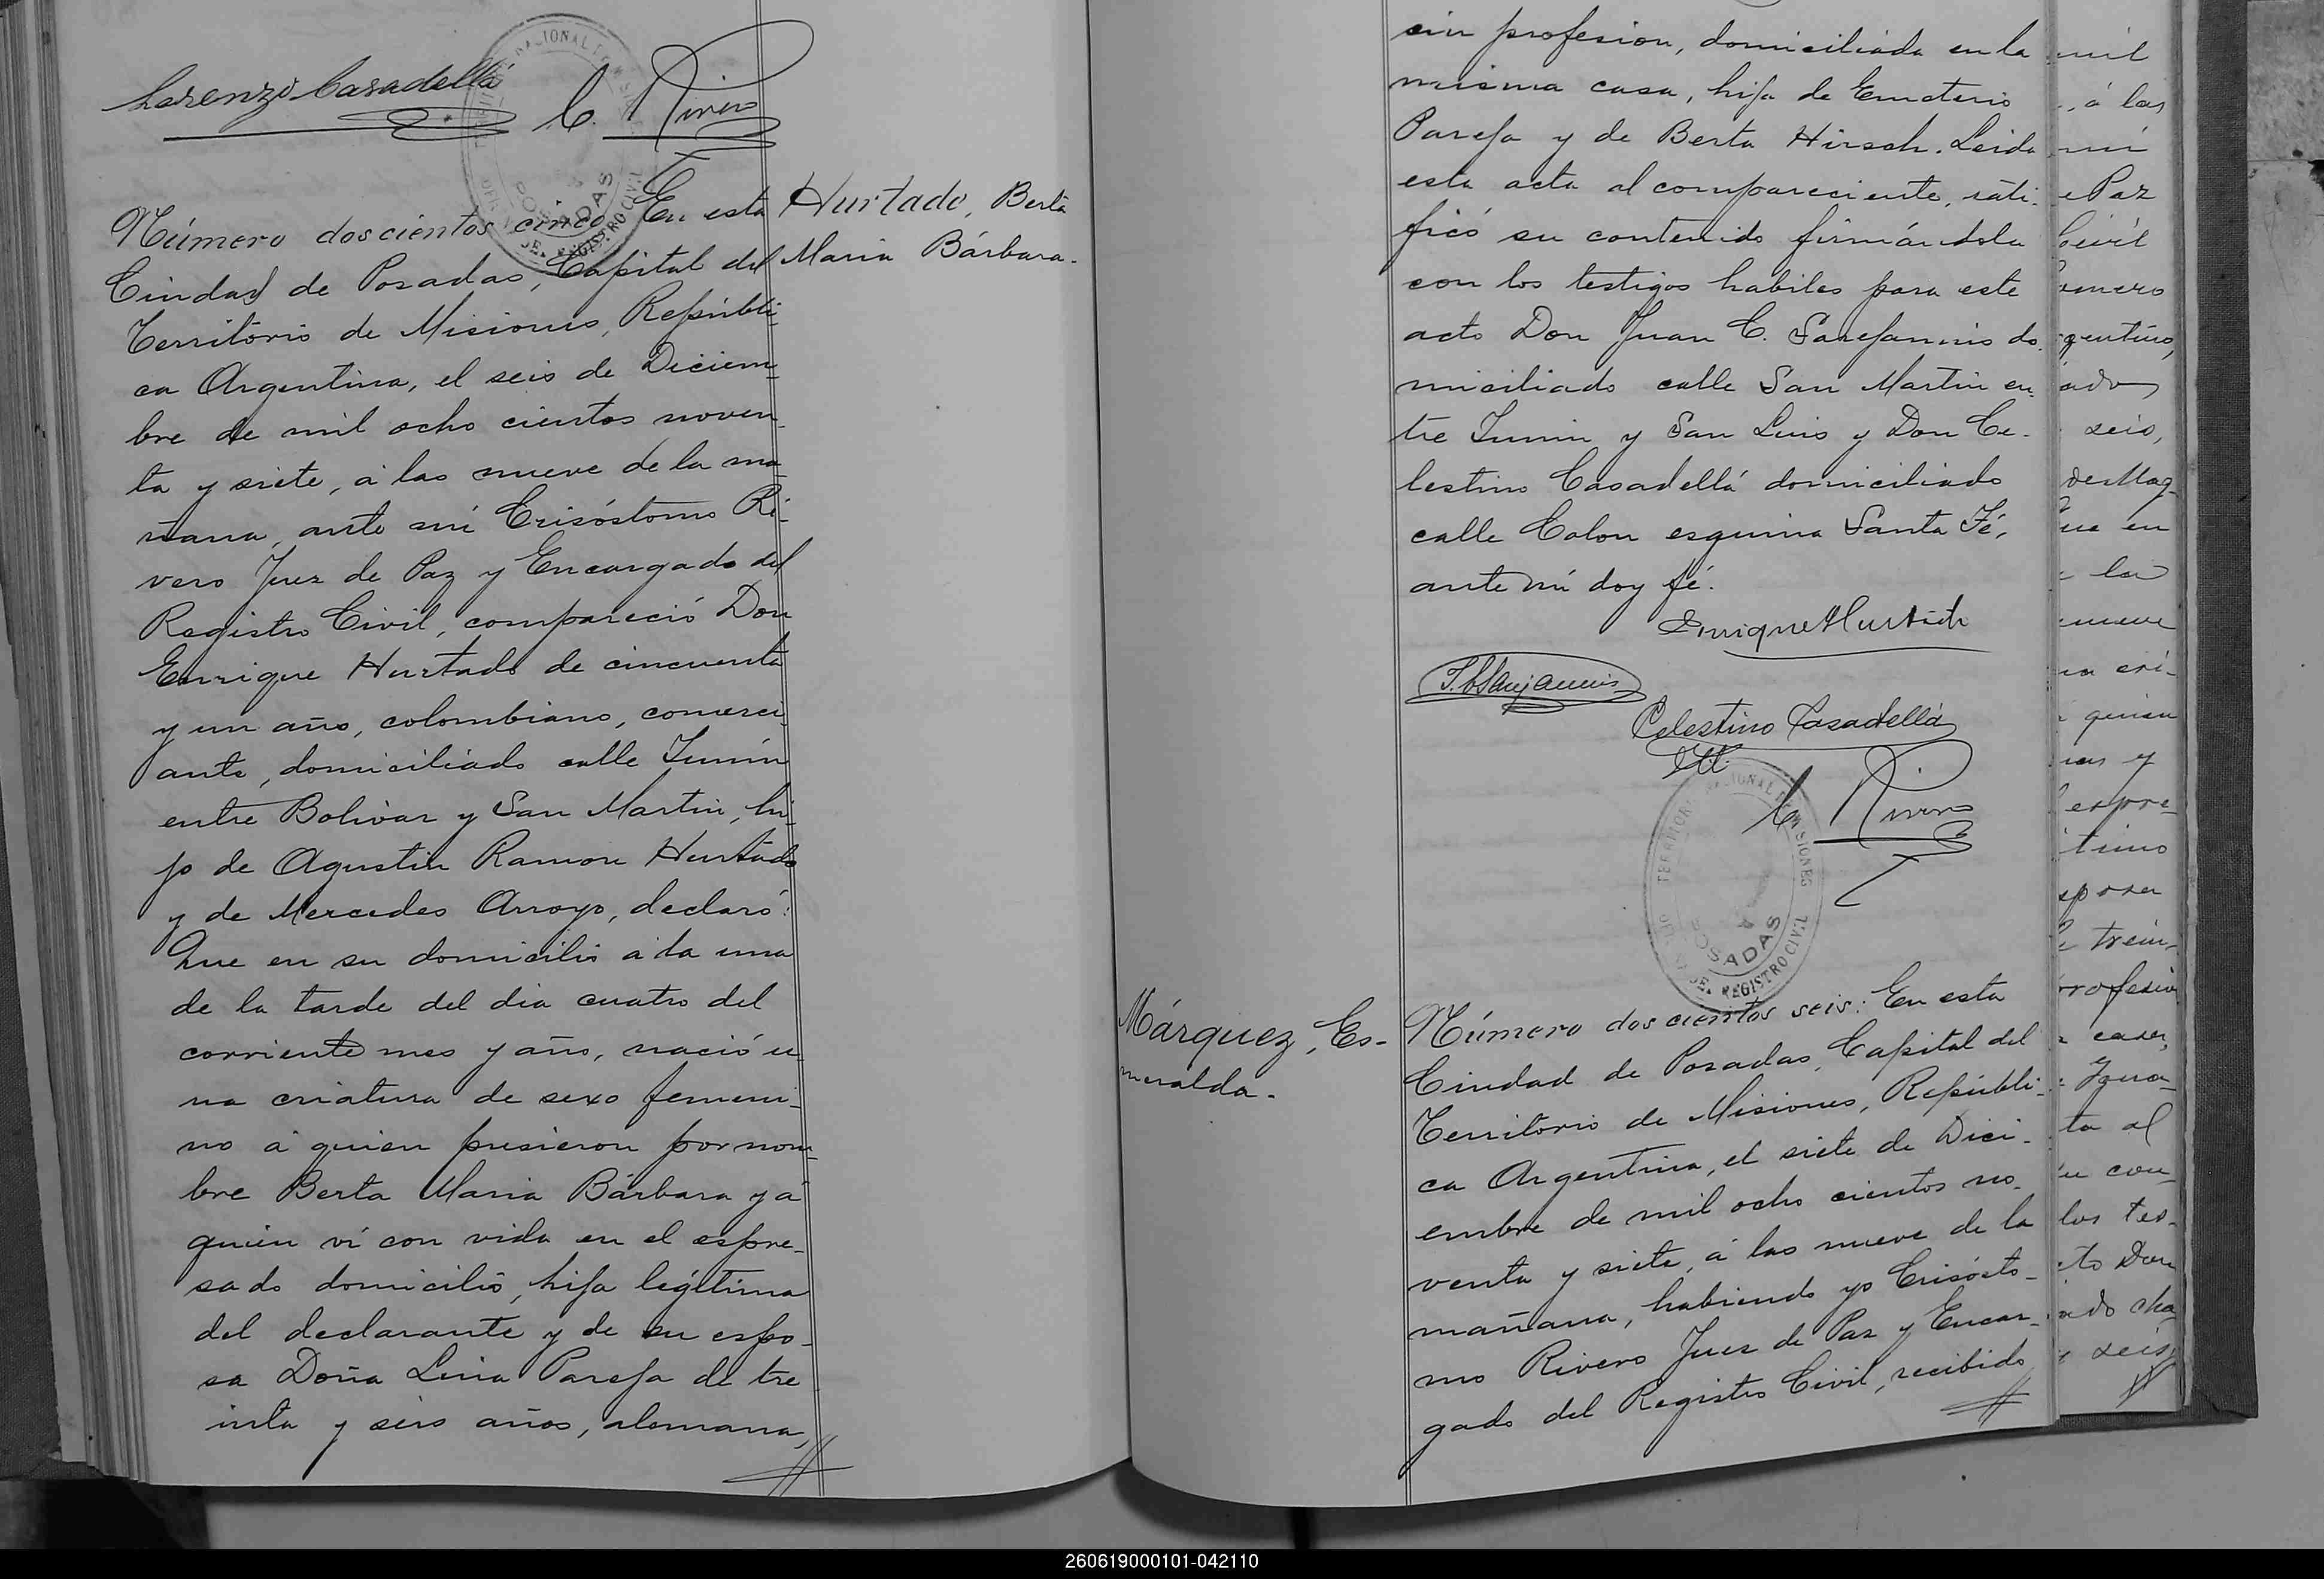 Lorenzo Casadellá
C. Rivero
Número doscientos cinco. En esta
Ciudad de Posadas, Capital del
Territorio de Misiones, Repúbli-
ca Argentina, el seis de Diciem-
bre de mil ocho cientos noven-
ta y siete, á las nueve de la ma-
ñana, ante mí Crisóstomo Ri-
vero Juez de Paz y Encargado del
Registro Civil, compareció Don
Enrique Hurtado de cincuenta
y un año, colombiano, comerci-
ante, domiciliado calle Junín
entre Bolivar y San Martin, hi-
jo de Agustin Ramon Hurtado
y de Mercedes Arroyo, declaró:
Que en su domicilio á la una
de la tarde del dia cuatro del
corriente mes y año, nació u-
na criatura de sexo femeni-
no á quien pusieron por nom-
bre Berta Maria Bárbara y á
quien ví con vida en el espre-
sado domicilio, hija legítima
del declarante y de su espo-
sa Doña Lina Pareja de tre
inta y seis años, alemana,
Hurtado, Berta
Maria Bárbara.
sin profesion, domiciliada en la
misma casa, hija de Emeterio
Pareja y de Berta Hirsch. Leida
esta acta al compareciente, rati-
ficó su contenido firmándola
con los testigos habiles para este
acto Don Juan C. Sarejannis do-
miciliado calle San Martin en-
tre Junin y San Luis y Don Ce-
lestino Casadellá domiciliado
calle Colon esquina Santa Fé,
ante mí doy fé.
Enrique Hurtado
Celestino Casadellá
C. Rivero
TERRITORIO NACIONAL DE MISIONES
POSADAS
REGISTRO CIVIL
Márquez, Es-
meralda.
Número doscientos seis: En esta
Ciudad de Posadas, Capital del
Territorio de Misiones, Repúbli-
ca Argentina, el siete de Dici-
embre de mil ocho cientos no-
venta y siete, á las nueve de la
mañana, habiendo yo Crisósto-
mo Rivero Juez de Paz y Encar-
gado del Registro Civil, recibido
mil
, á las
mí
e Paz
Civil
omero
rgentino,
ado
seis,
de Maq-
ue en
la
nueve
na cri-
quien
nas y
espre-
timo
sposa
e trein-
rofesion
casa,
Igna-
ta al
u con-
los tes-
cto Don
ado cha-
seis,
260619000101-042110